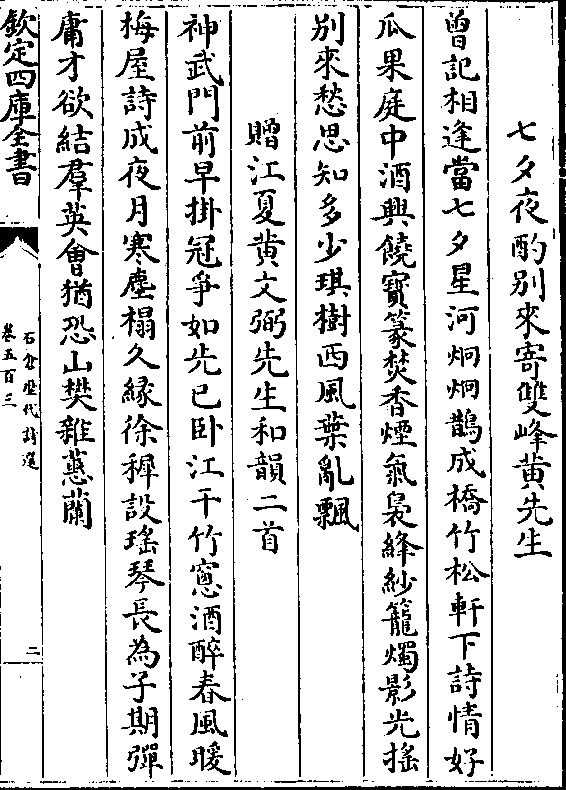 七夕夜酌别來寄雙峰黄先生
曾記相逢當七夕星河炯炯鵲成橋竹松軒下詩情好
瓜果庭中酒興饒寳篆焚香煙氣裊絳紗籠燭影光搖
别來愁思知多少琪樹西風葉亂飄
贈江夏黄文弼先生和韻二首
神武門前早掛冠爭如先已卧江干竹窓酒醉春風暖
梅屋詩成夜月寒塵榻久緣徐穉設瑤琴長為子期彈
庸才欲結羣英㑹猶恐山樊雜蕙蘭
欽定四庫全書
石倉歴代詩選
卷五百三
二